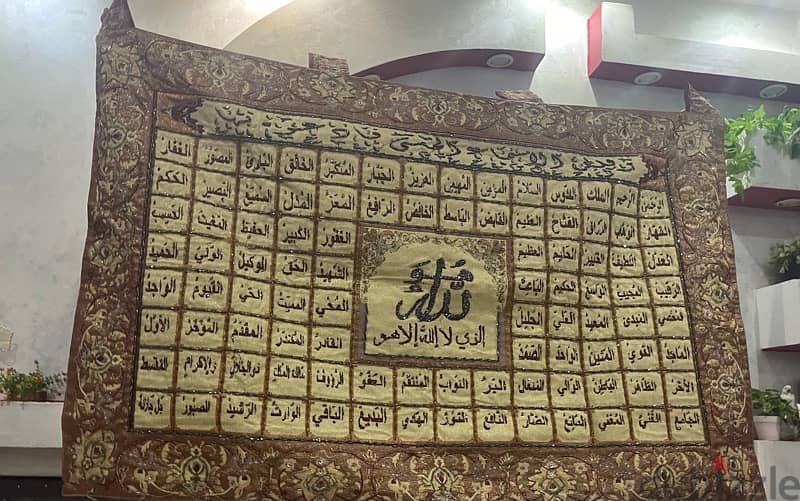 ولله الأسماء الحسنى فادعوه بها
الرحمن الرحيم الملك القدوس السلام المؤمن المهيمن العزيز الجبار المتكبر الخالق البارئ المصور الغفار
القهار الوهاب الرزاق الفتاح العليم القابض الباسط الخافض الرافع المعز المذل السميع البصير الحكم
العدل اللطيف الخبير الحليم العظيم
الغفور الكبير الحفيظ المغيث الحسيب
الرقيب المجيب الواسع الحكيم الباعث
الشهيد الحق الوكيل الولي الحميد
المحصي المبدئ المعيد العلي الجليل
المحيي المميت الحي القيوم الواجد
الماجد القوي المتين الواحد الصمد
القادر المقتدر المقدم المؤخر الأول
هو الله
الذي لا إله إلا هو
الآخر الظاهر الباطن الوالي المتعال البر التواب المنتقم العفو الرؤوف مالك الملك ذو الجلال والإكرام المقسط
الجامع الغني المغني المانع الضار النافع النور الهادي البديع الباقي الوارث الرشيد الصبور جل جلاله